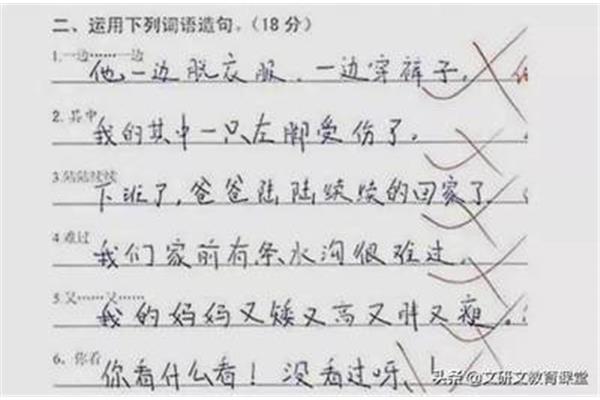 二、运用下列词语造句。(18分)
1.一边……一边
他一边脱衣服、一边穿裤子。
2.其中
我的其中一只左脚受伤了。
3.陆陆续续
下班了,爸爸陆陆续续的回家了。
4.难过
我们家前有条水沟很难过。
5.又……又……
我的妈妈又矮又高又胖又瘦。
6、你看
你看什么看!没看过呀!
头条@文研文教育课堂